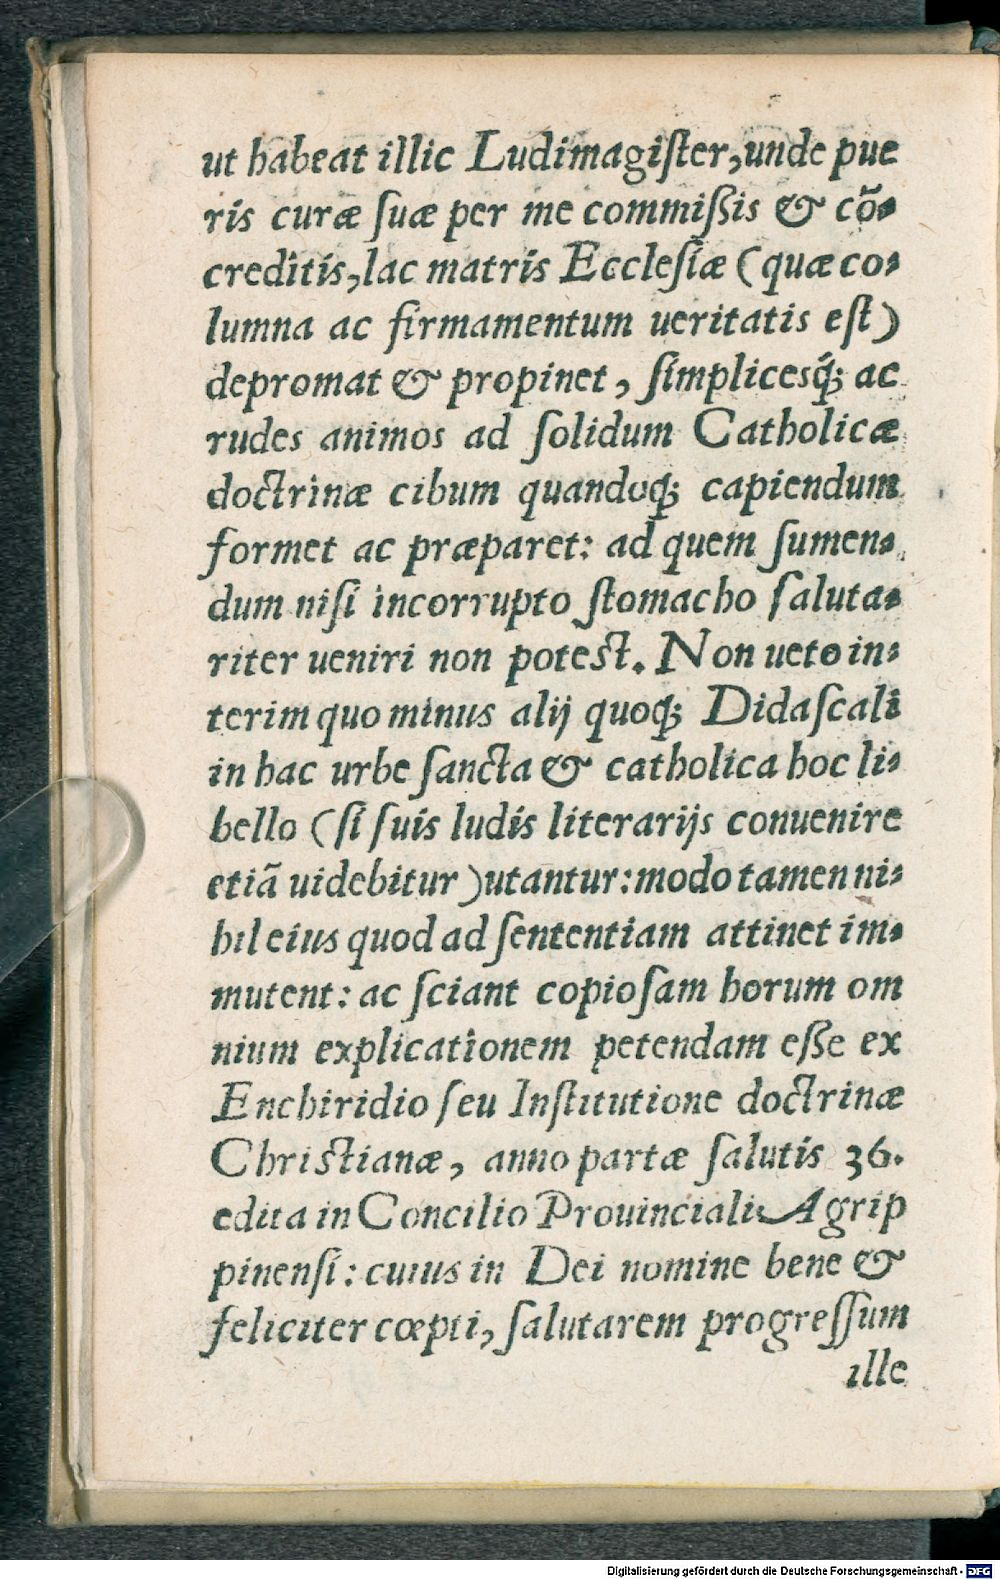 ut habeat illic Ludimagiſter, unde pue
ris curæ ſuæ per me commiſsis & cõ-
creditis, lac matris Eccleſiæ (quæ co-
lumna ac firmamentum ueritatis eſt)
depromat & propinet, ſimplicesq́; ac
rudes animos ad ſolidum Catholicæ
doctrinæ cibum quandoq; capiendum
formet ac præparet: ad quem ſumen-
dum niſi incorrupto ſtomacho ſaluta-
riter ueniri non potest. Non ueto in-
terim quo minus alij quoq; Didaſcali
in hac urbe ſancta & catholica hoc li-
bello (ſi ſuis ludis literarijs conuenire
etiã uidebitur) utantur: modo tamen ni-
hil eius quod ad ſententiam attinet im-
mutent: ac ſciant copioſam horum om
nium explicationem petendam eſſe ex
Enchiridio ſeu Inſtitutione doctrinæ
Christianæ, anno partæ ſalutis 36.
edita in Concilio Prouinciali Agrip
pinenſi: cuius in Dei nomine bene &
feliciter cœpti, ſalutarem progreſſum
ille
Digitalisierung gefördert durch die Deutsche Forschungsgemeinschaft - DFG